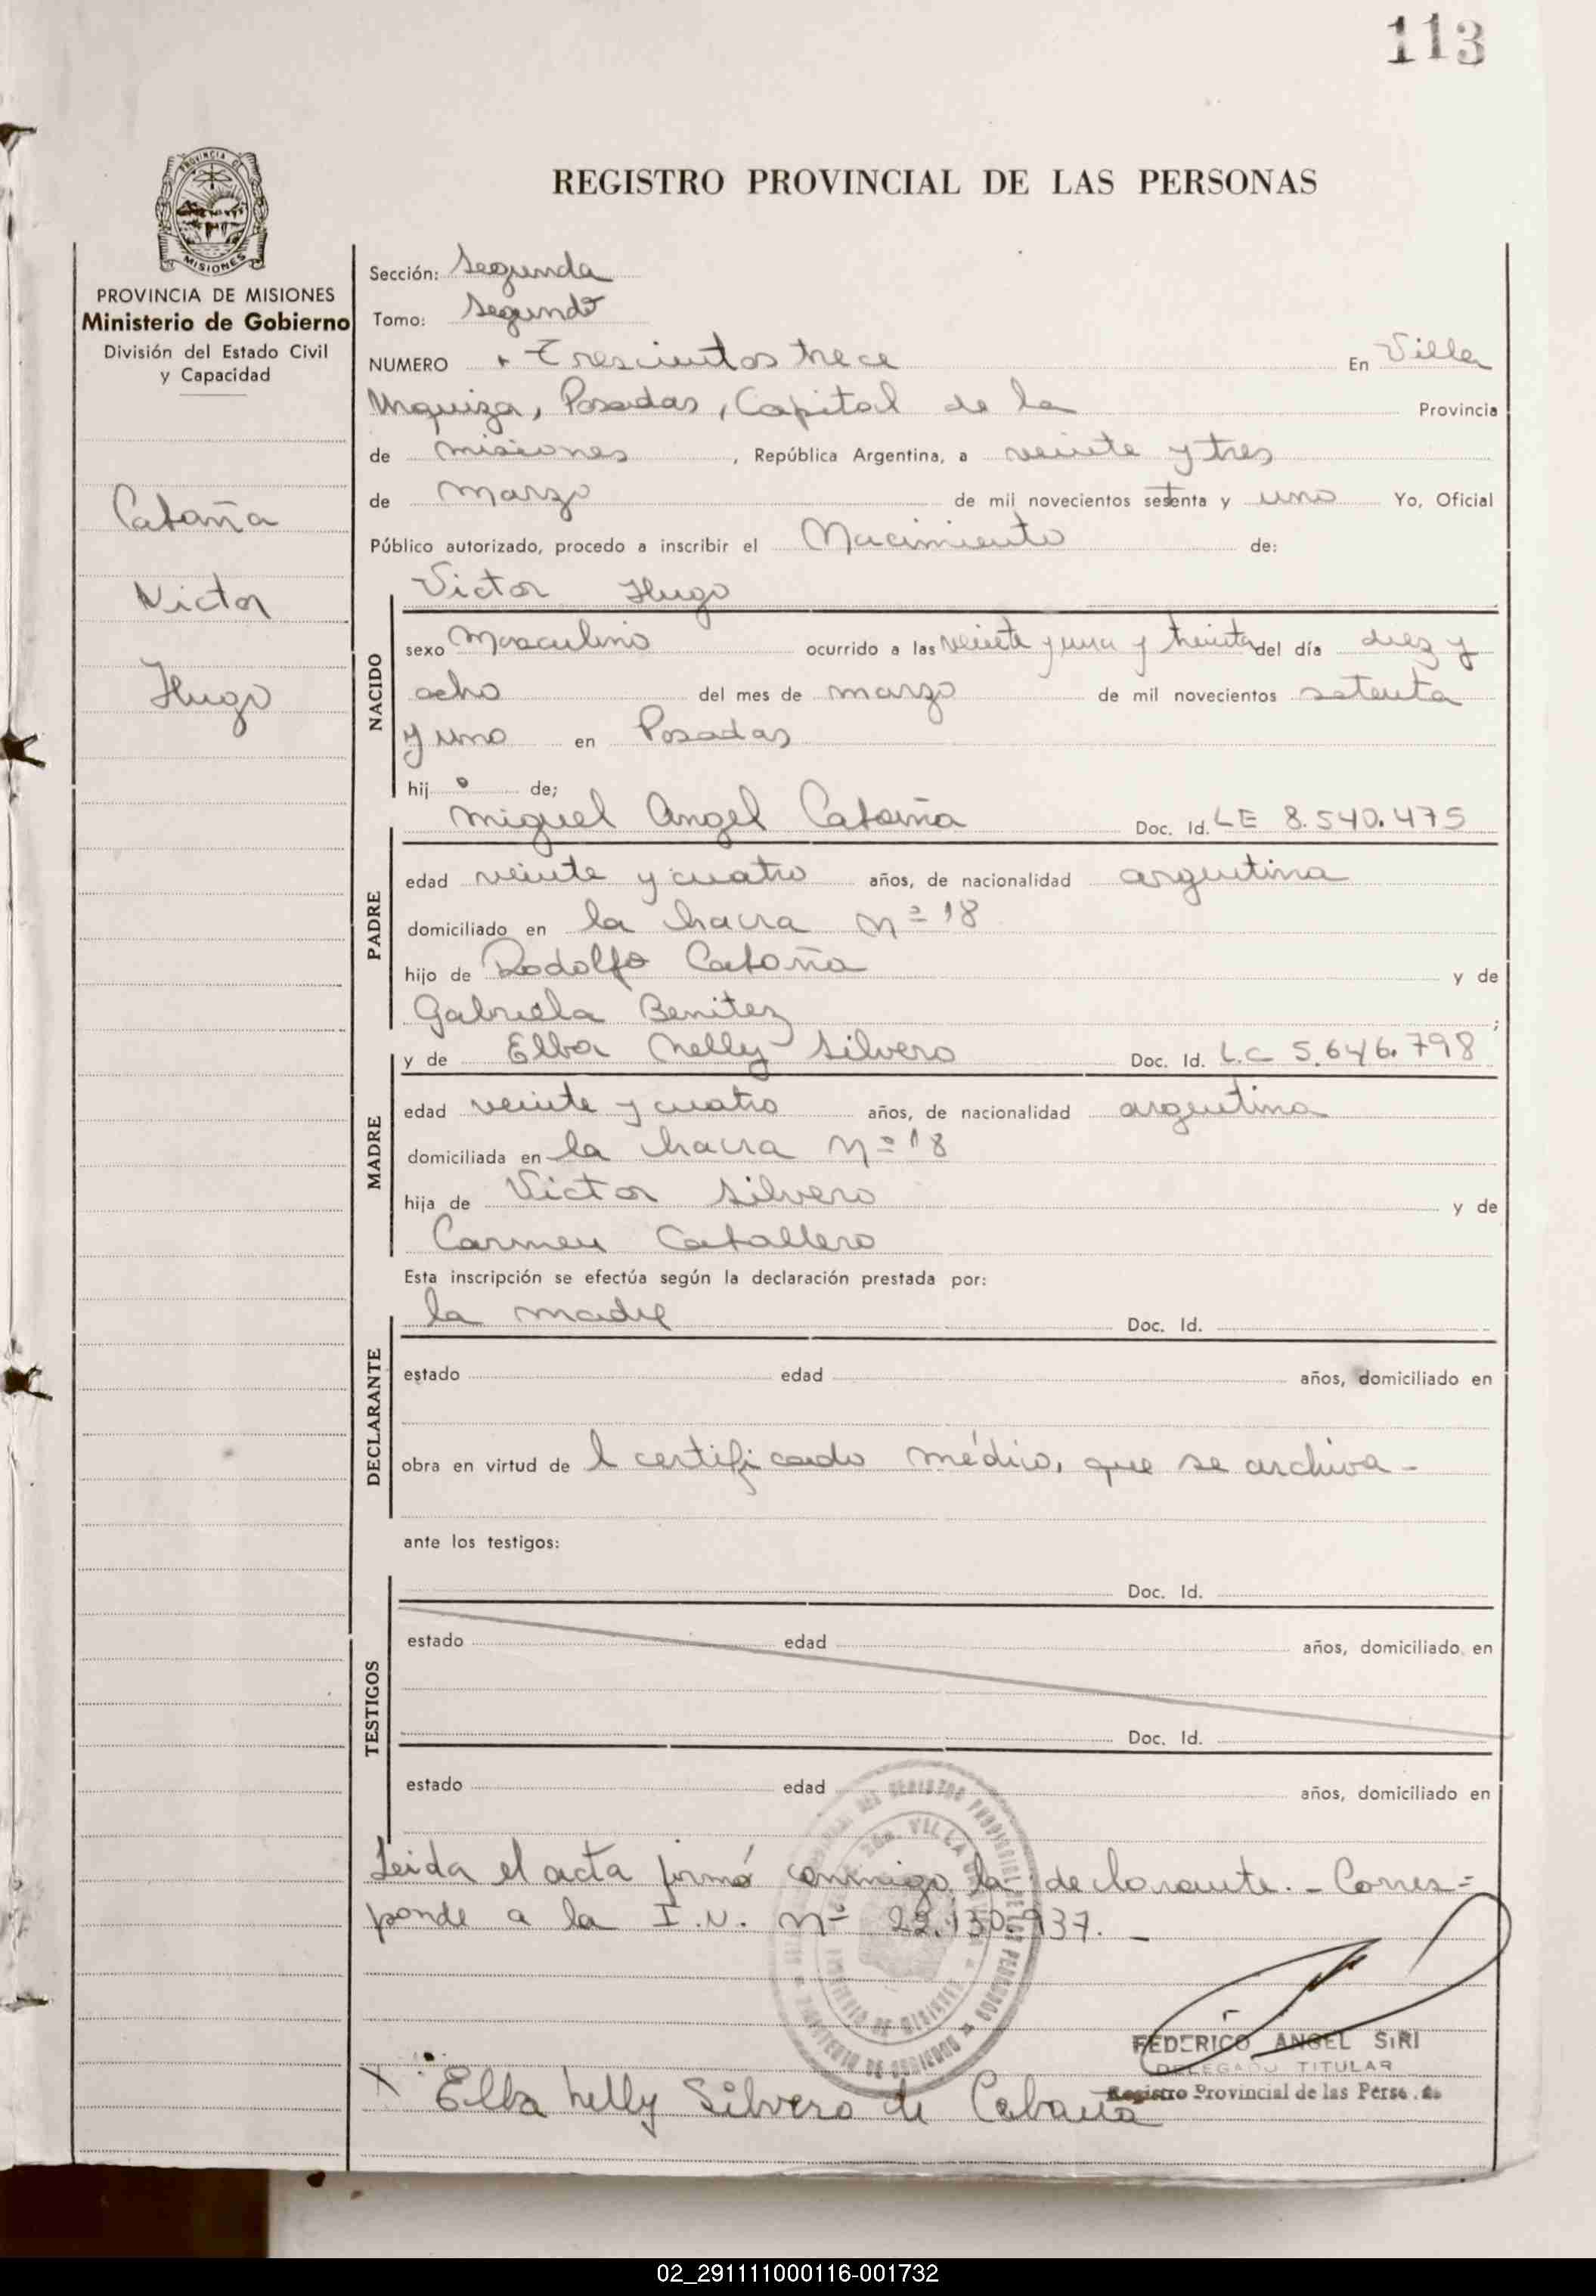 113
PROVINCIA DE
MISIONES
REGISTRO PROVINCIAL DE LAS PERSONAS
PROVINCIA DE MISIONES
Ministerio de Gobierno
División del Estado Civil
y Capacidad
Cabaña
Victor
Hugo
Sección: Segunda
Tomo: Segundo
NUMERO Trescientos trece En Villa
Urquiza, Posadas, Capital de la Provincia
de misiones, República Argentina, a veinte y tres
de marzo de mil novecientos setenta y uno Yo, Oficial
Público autorizado, procedo a inscribir el Nacimiento de:
Victor Hugo
NACIDO
sexo Masculino ocurrido a las veinte y una y treinta del día diez y
ocho del mes de marzo de mil novecientos setenta
y uno en Posadas
hij o de;
Miguel Angel Cabaña Doc. Id. LE 8.540.475
PADRE
edad veinte y cuatro años, de nacionalidad argentina
domiciliado en la hacra nº 18
hijo de Rodolfo Cabaña y de
Gabriela Benitez ;
y de Elba Nelly Silvero Doc. Id. L.C 5.646.798
MADRE
edad veinte y cuatro años, de nacionalidad argentina
domiciliada en la hacra nº 18
hija de Victor Silvero y de
Carmen Caballero
Esta inscripción se efectúa según la declaración prestada por:
la madre Doc. Id.
DECLARANTE
estado edad años, domiciliado en
obra en virtud de l certificado médico, que se archiva -
ante los testigos:
Doc. Id.
TESTIGOS
estado edad años, domiciliado en
Doc. Id.
estado edad años, domiciliado en
Leida el acta firmó conmigo la declarante. - Corres=
ponde a la I.N. nº 22.130.937. -
FEDERICO ANGEL SIRI
DELEGADO TITULAR
Registro Provincial de las Perso
Elba Nelly Silvero de Cabaña
02_291111000116-001732